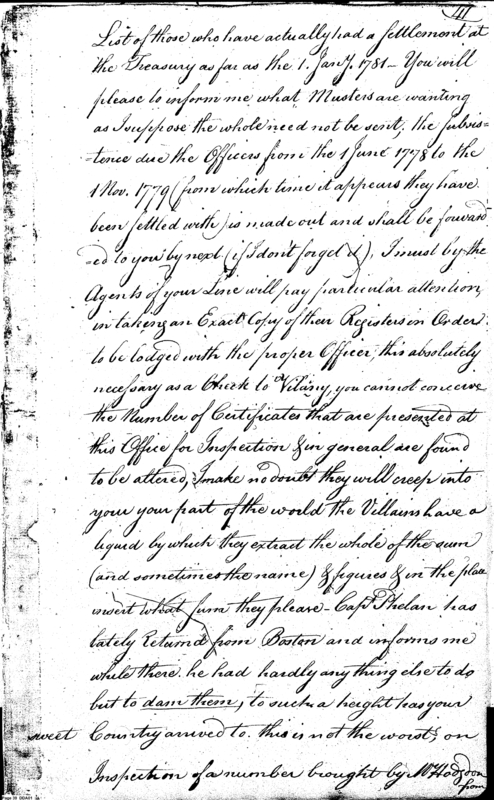 111
List of those who have actually had a Settlement at
the Treasury as far as the 1. Jany. 1781 - You will
please to inform me what Musters are wanting
as I suppose the whole need not be sent, the subsis=
tence due the Officers from the 1 June 1778 to the
1 Nov. 1779 (from which time it appears they have
been settled with) is made out and shall be forward
=ed to you by next (if I don't forget it), I must by the
Agents of your Line will pay particular attention
in taking an Exact Copy of their Registers in Order
to be lodged with the proper Officer, this absolutely
necessary as a Check to Viliny, you cannot conceive
the Number of Certificates that are presented at
this Office for Inspection & in general are found
to be altered, I make no doubt they will creep into
your your part of the world the Villains have a
liquid by which they extract the whole of the sum
(and sometimes the name) & figures & in the place
insert what sum they please - Capt. Phelan has
lately returnd from Boston and informs me
while there he had hardly any thing else to do
but to dam them, to such a height has your
sweet Country arrived to. this is not the worst, on
Inspection of a number brought by Mr Hodgdon
from